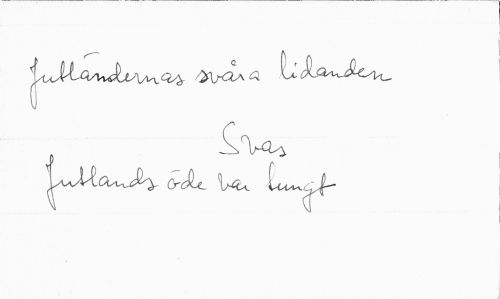 Jutländernas svåra lidanden
Svas
Jutlands öde var tungt